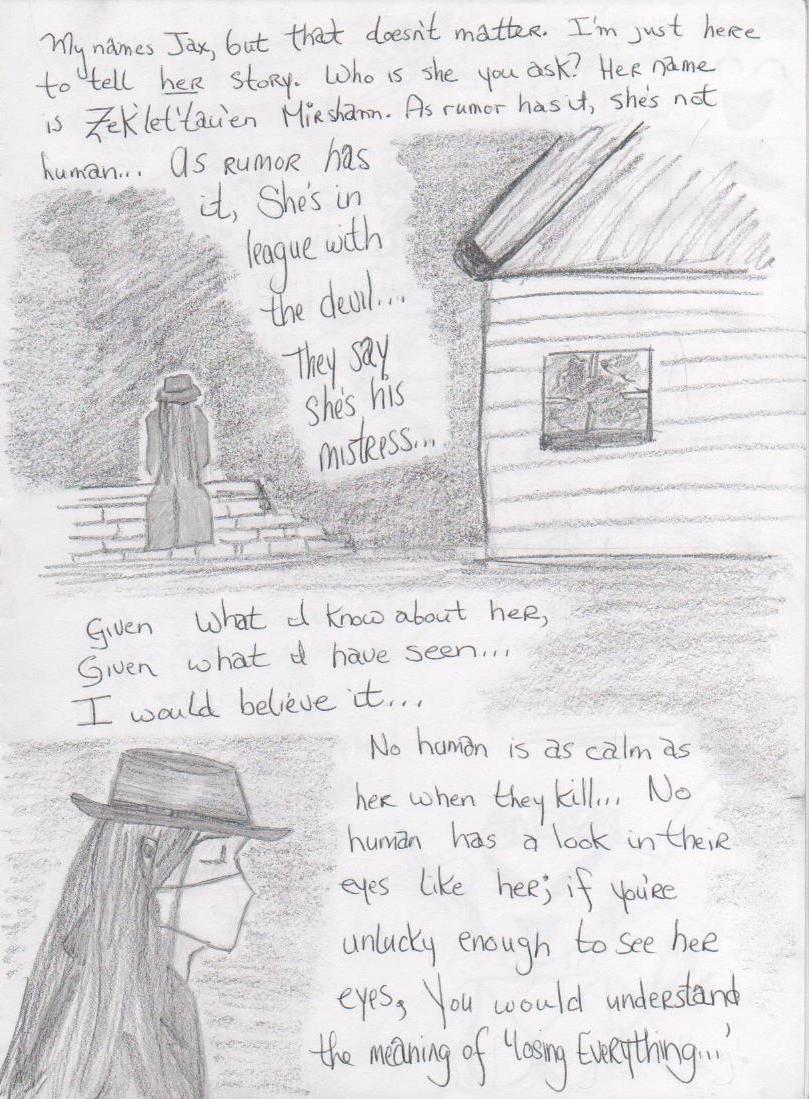 My names Jax, but that doesn't matter. I'm just here
to tell her story. Who is she you ask? Her name
is Zek'let'tau'en Mirshann. As rumor has it, she's not
human... as rumor has
it, She's in
league with
the devil...
They say
she's his
mistress...
Given what I know about her,
Given what I have seen...
I would believe it...
No human is as calm as
her when they kill... No
human has a look in their
eyes like her; if you're
unlucky enough to see her
eyes, You would understand
the meaning of "losing Everything..."